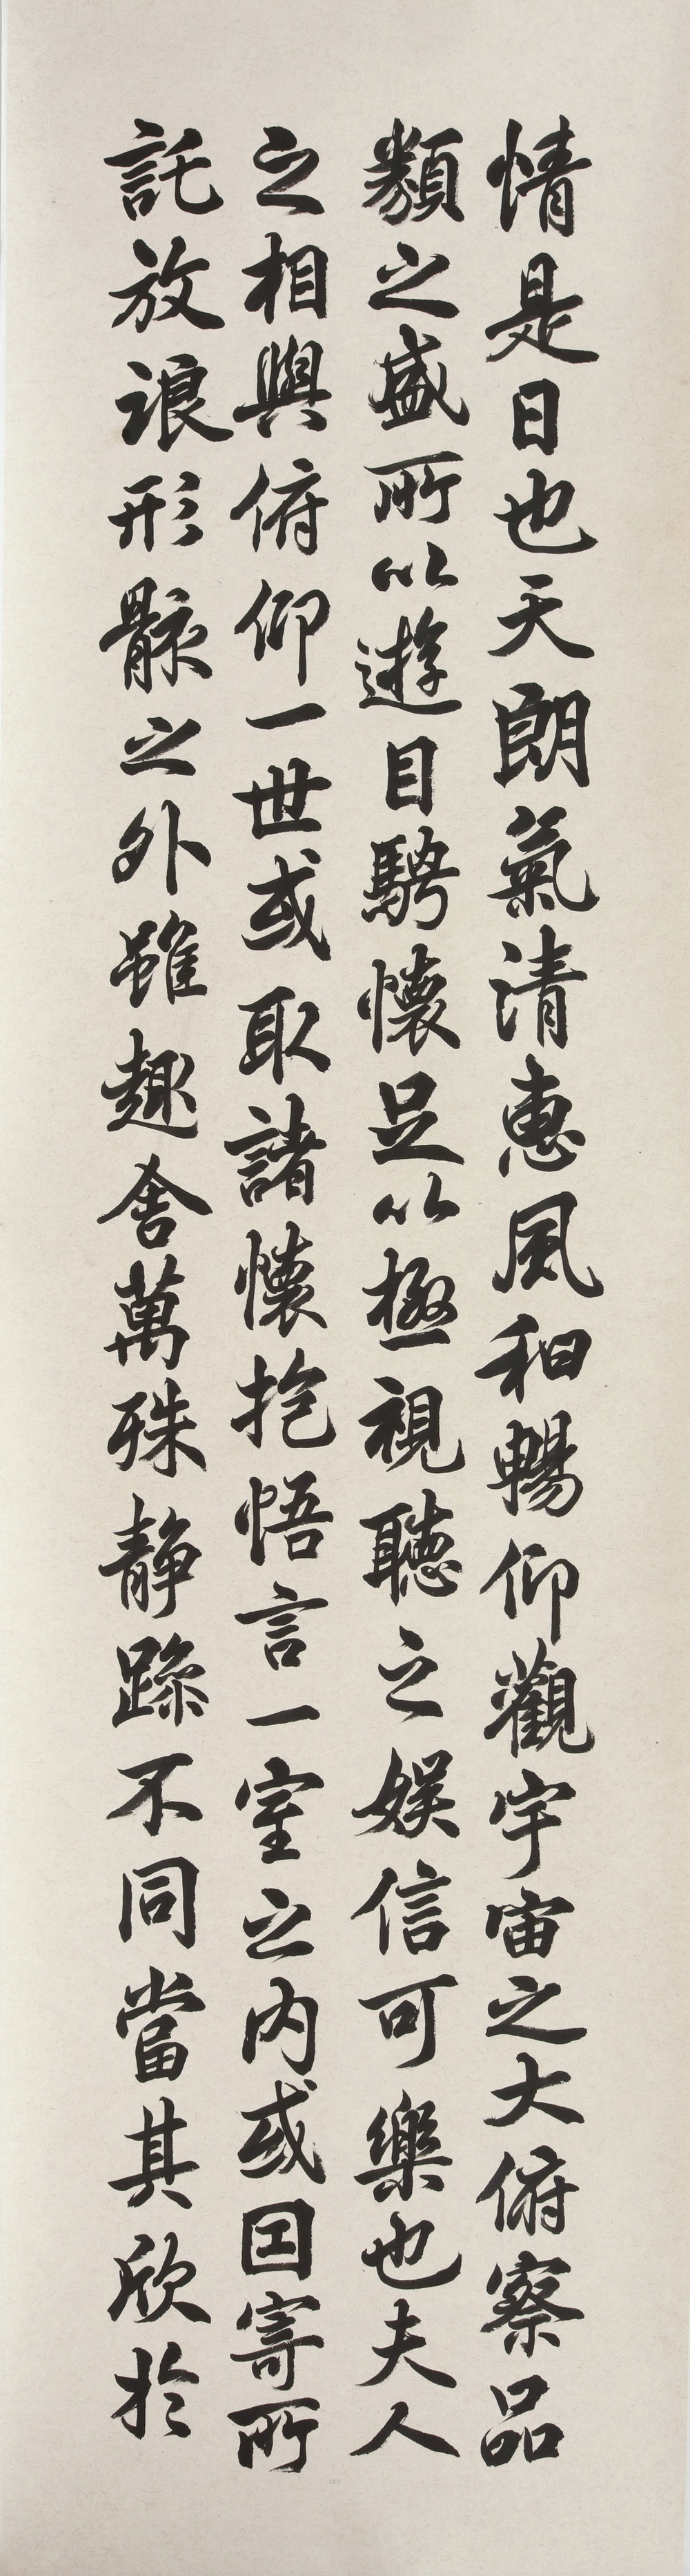 情是日也天朗氣清惠風和暢仰觀宇宙之大俯察品
類之盛所以遊目騁懷足以極視聽之娛信可樂也夫人
之相與俯仰一世或取諸懷抱悟言一室之內或因寄所
託放浪形骸之外雖趣舍萬殊靜躁不同當其欣於